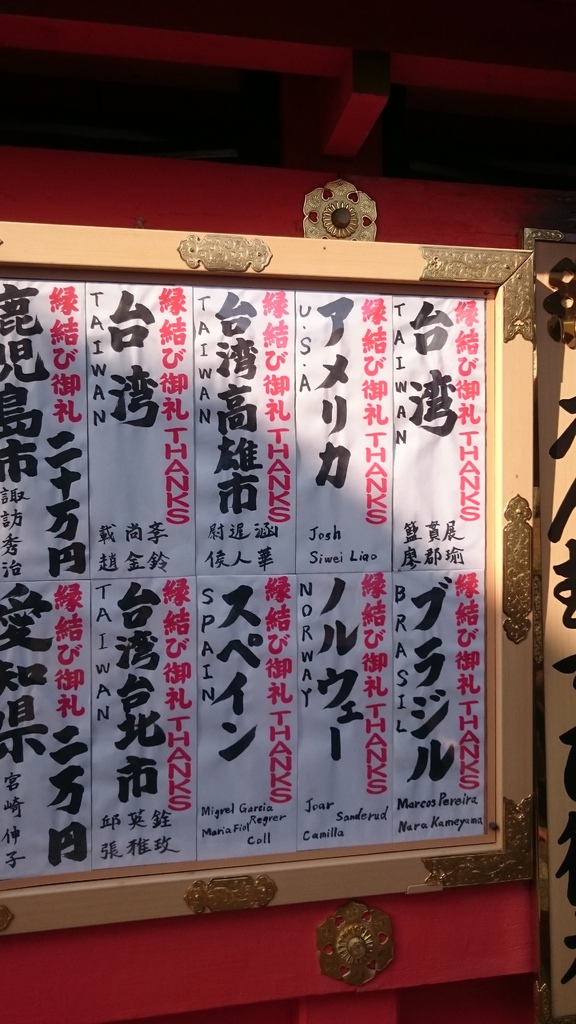 縁結び御礼 THANKS
台湾
TAIWAN
籃貫展
廖郡瑜
縁結び御礼 THANKS
アメリカ
U.S.A
Josh
Siwei Liao
縁結び御礼 THANKS
台湾高雄市
TAIWAN
侯人華
縁結び御礼 THANKS
台湾
TAIWAN
載尚李
趙金鈴
縁結び御礼
二十万円
鹿児島市
諏訪秀治
縁結び御礼 THANKS
ブラジル
BRASIL
Marcos Pereira
Nara Kameyama
縁結び御礼 THANKS
ノルウェー
NORWAY
Joar Sanderud
Camilla
縁結び御礼 THANKS
スペイン
SPAIN
Migrel Garcia Regrer
Maria Fiol Coll
縁結び御礼 THANKS
台湾台北市
TAIWAN
邱英銓
張雅玫
縁結び御礼
二万円
愛知県
宮崎伸子